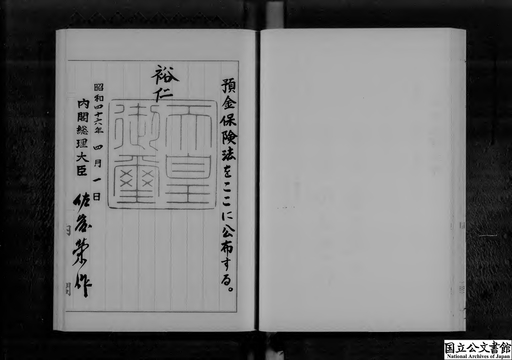 預金保険法をここに公布する。
裕仁
天皇御璽
昭和四十六年四月一日
内閣総理大臣 佐藤榮作
国立公文書館
National Archives of Japan